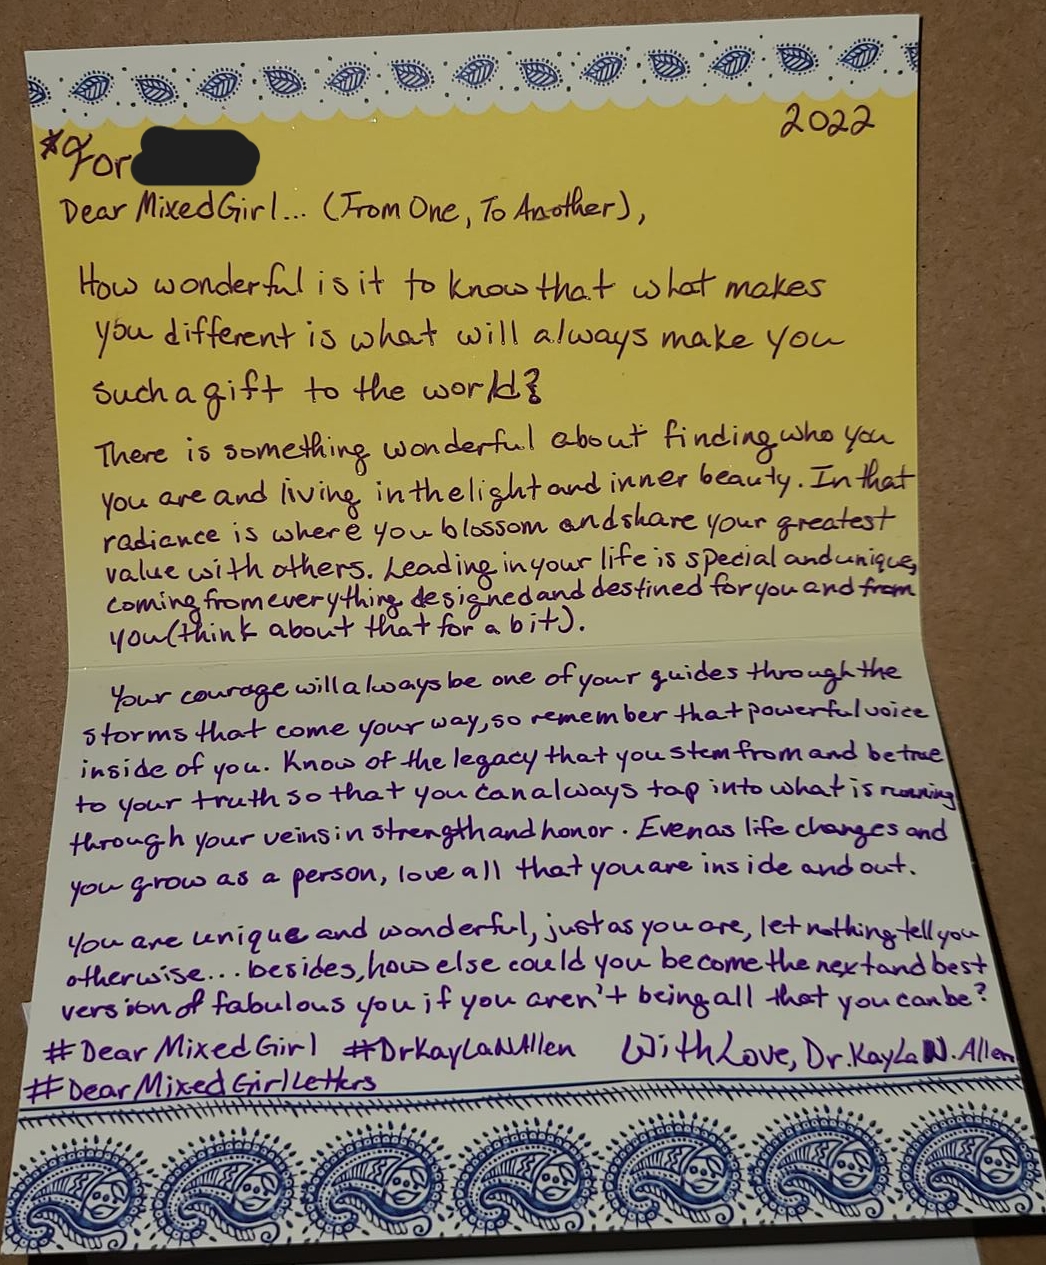 2022
*For
Dear Mixed Girl... (From One, To Another),
How wonderful is it to know that what makes
you different is what will always make you
such a gift to the world?
There is something wonderful about finding who you
you are and living in the light and inner beauty. In that
radiance is where you blossom and share your greatest
value with others. Leading in your life is special and unique,
coming from everything designed and destined for you and from
you (think about that for a bit).
Your courage will always be one of your guides through the
storms that come your way, so remember that powerful voice
inside of you. Know of the legacy that you stem from and be true
to your truth so that you can always tap into what is running
through your veins in strength and honor. Even as life changes and
you grow as a person, love all that you are inside and out.
You are unique and wonderful, just as you are, let nothing tell you
otherwise... besides, how else could you become the next and best
version of fabulous you if you aren't being all that you can be?
#DearMixedGirl #DrKaylaNAllen With Love, Dr. Kayla N. Allen
#DearMixedGirlLetters